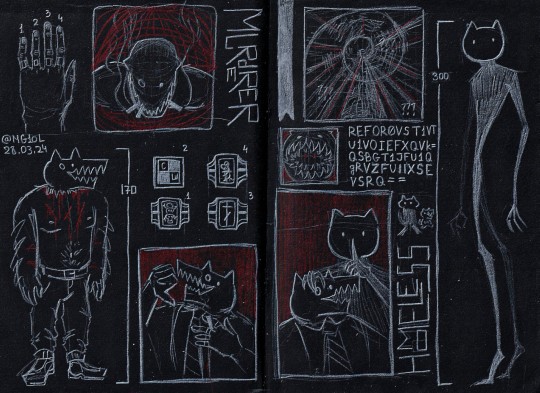 1 2 3 4
MURDERER
@MG1OL
28.03.24
170
2
4
1
3
???
300
REFORØVST1VT
U1VOIEFXQVK=
QSBGT1JFU1Q
gRVZFUIIXSE
VSRQ==
HOMELESS